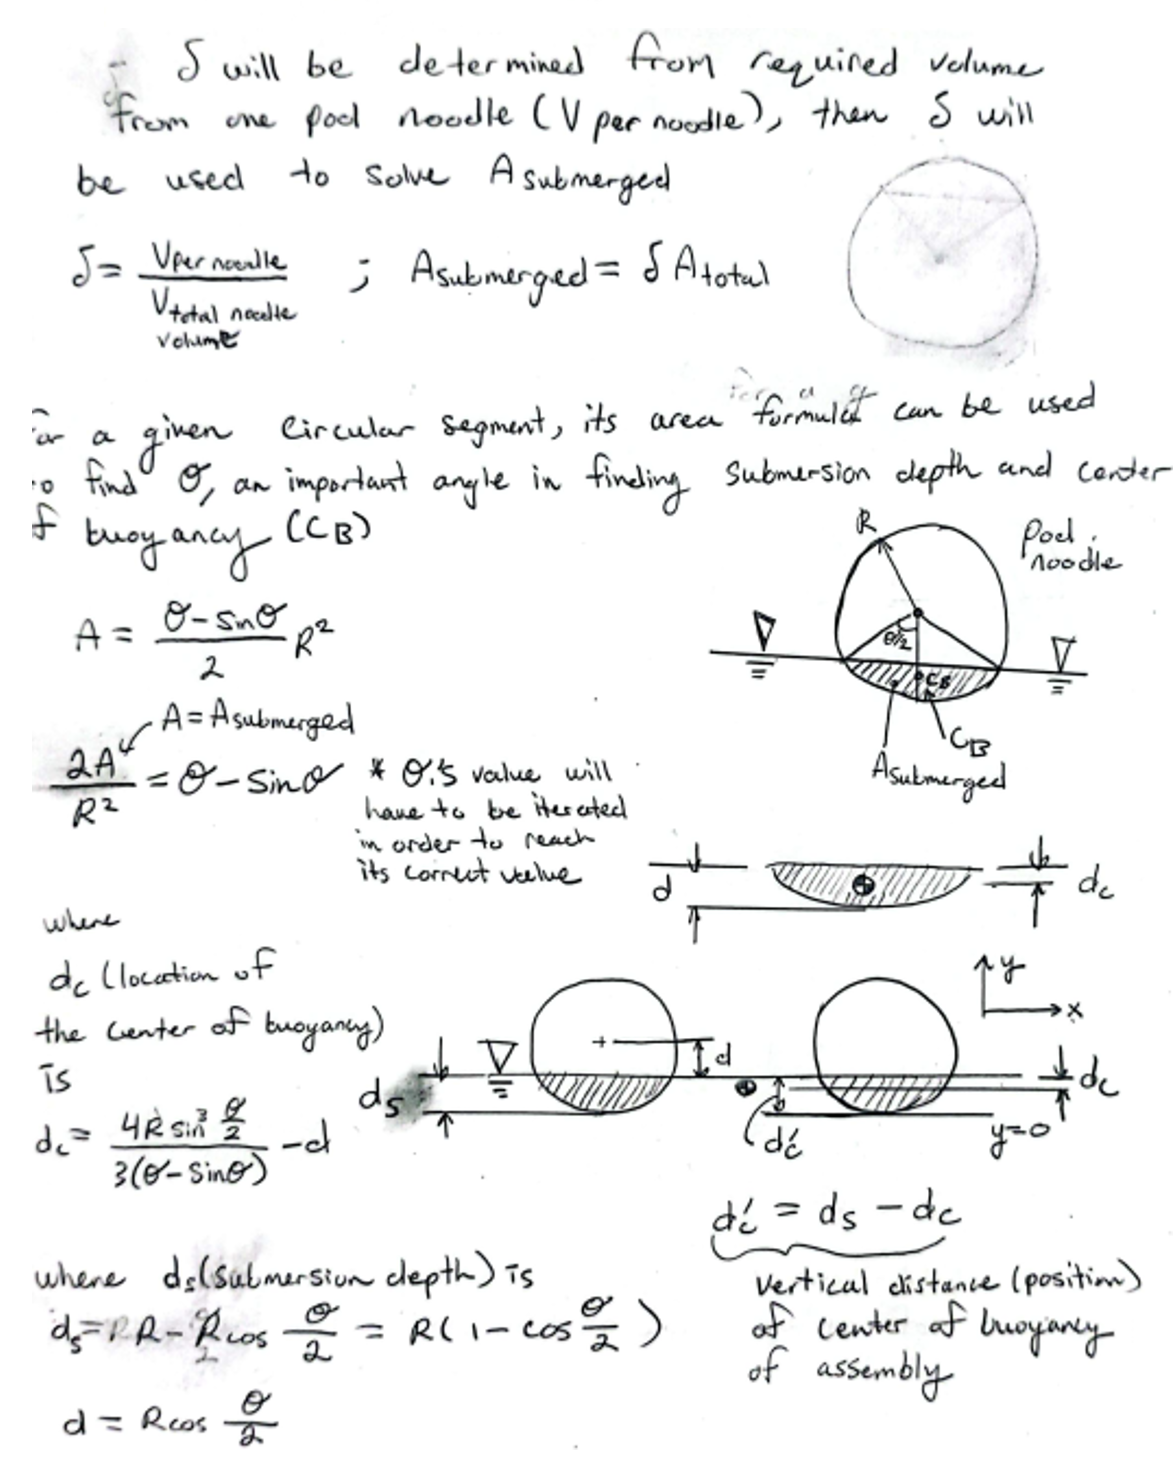 - δ will be determined from required volume
from one pool noodle (V per noodle), then δ will
be used to solve A submerged
δ = Vper noodle / Vtotal noodle volume ; Asubmerged = δ Atotal
For a given circular segment, its area formula can be used
to find θ, an important angle in finding submersion depth and center
of buoyancy (CB)
R
pool
noodle
A = (θ - sinθ)/2 R²
θ/2
CB
CB
Asubmerged
A = Asubmerged
2A/R² = θ - sinθ
* θ's value will
have to be iterated
in order to reach
its correct value
d
dc
where
dc (location of
the center of buoyancy)
is
dc = 4R sin³ θ/2 / 3(θ - sinθ) - d
y
x
d
ds
dc
dc'
y=0
dc' = ds - dc
vertical distance (position)
of center of buoyancy
of assembly
where ds (submersion depth) is
ds = R - R cos θ/2 = R(1 - cos θ/2)
d = R cos θ/2